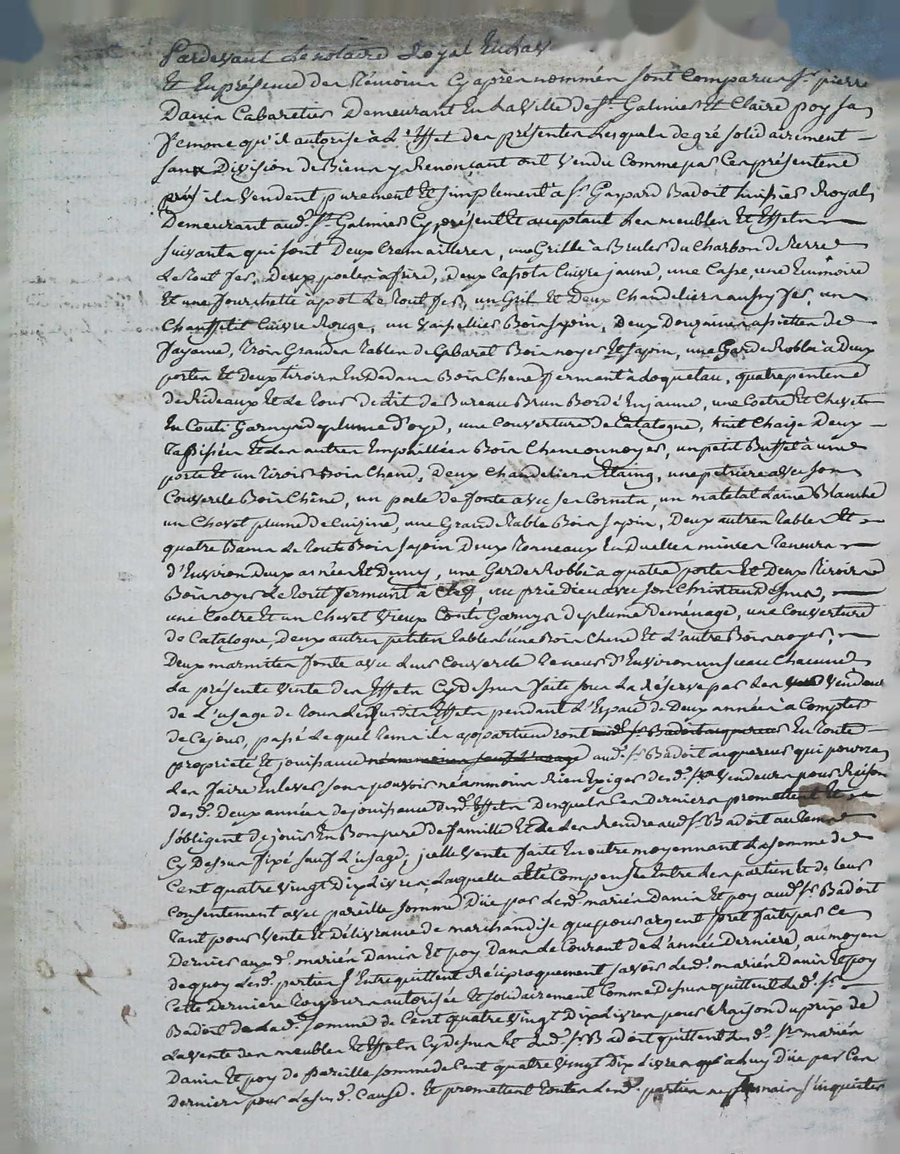 Pardevant le notaire Royal
Et En présence des témoins cy après nommés sont comparus sr. pierre
Danis Cabaretier Demeurant En la Ville de st. Galmier Et Claire poy sa
femme qu'il autorise à L'Effet des présentes Lesquels de gré solidairement
sans Division de Biens y Renonçant ont Vendu Comme par Ces présentes
ils Vendent purement Et simplement à sr. Gaspard Badoit huissier Royal
Demeurant aud. st. Galmier Cy présent Et aceptant Les meubles Et Effets
suivants qui sont Deux Cremailleres, une Grille à Bruler du Charbon de Pierre
Le tout fer, Deux poeles a frire, deux Cuivre jaune, une une
Et une fourchette à pot Le tout fer, un Gril Et Deux Chandeliers aussy fer, un
Cuivre Rouge, un Vaisellier Bois sapin, Deux Douzaines assiettes de
fayance, trois Grandes tables de Cabaret Bois noyer Et sapin, une Garde Robbe à Deux
portes Et Deux tiroirs En Dedans Bois Chene fermant à quatre pentes
de Rideaux Et Le tour de Lit de Bureau Brun Bordé En jaune, une Coetre Et Chevet
En Couti Garny de plume d'oye, une Couverture de Catalogne, huit Chaize Deux
Tapissées Et Les autres Empaillées Bois Chene ou noyer, un petit Buffet à une
porte Et un tiroir Bois Chene, Deux Chandeliers Etaing, une petriere avec son
Couvercle Bois Chêne, un poele de fonte avec ses Cornets, un matelat Laine Blanche
un Chevet plume de Cuizine, une Grand Table Bois sapin, Deux autres tables Et
quatre Bancs Le toute Bois sapin Deux tonneaux
d'Environ Deux asnées Et Demy, une Garde Robbe à quatre portes Et Deux tiroirs
Bois noyer Le tout fermant à Clef, un prie Dieu avec son Christ au dessus,
une Coetre Et un Chevet Vieux Couti Garnys de plume Demenage, une Couverture
de Catalogne, Deux autres petites tables L'une Bois Chene Et L'autre Bois noyer,
Deux marmites fonte avec Leur Couvercle teneur d'Environ un seau Chacune
La présente Vente des Effets Cy dessus faite sous La Réserve par Les Vendeurs
de L'usage de tous Lesdits Effets pendant L'Espace de Deux années à Compter
de Ce jour, passé Lequel tems ils appartiendront En toute
propriete Et jouissance aud. sr. Badoit aquereur qui pourra
Les faire Enlever sans pouvoir néammoins Rien Exiger desd. Vendeurs pour Raison
desd. Deux années de jouissance desd. Effets Desquels Ces Derniers promettent Et
s'obligent de jouir En Bon pere De famille Et de Les Rendre aud. sr. Badoit au tems
Cy Dessus fixé sauf L'usage, icelle Vente faite En outre moyennant La somme de
Cent quatre Vingt Dix Livres, Laquelle a été Compensée Entre Les parties Et de Leur
Consentement avec pareille somme Düe par Lesd. mariés Danis Et poy aud. sr. Badoit
tant pour Vente Et Délivrance de marchandise que pour argent preté fait par Ce
Dernier auxd. mariés Danis Et poy Dans Le Courant de L'année Derniere, au moyen
de quoy Lesd. parties s'Entrequittent Réciproquement savoir Lesd. mariés Danis Et poy
Cette Derniere toujours autorisée Et solidairement Comme Dessus quittent Led. sr.
Badoit de Lad. somme de Cent quatre Vingt Dix Livres pour Raison du prix de
La Vente des meubles Et Effets Cy dessus Et Led. sr. Badoit quittent Lesd. mariés
Danis Et poy de pareille somme de Cent quatre Vingt Dix Livres à Luy Düe par Ces
Derniers pour Lasusd. Cause. Et promettent toutes Lesd. parties ne jamais s'inquieter